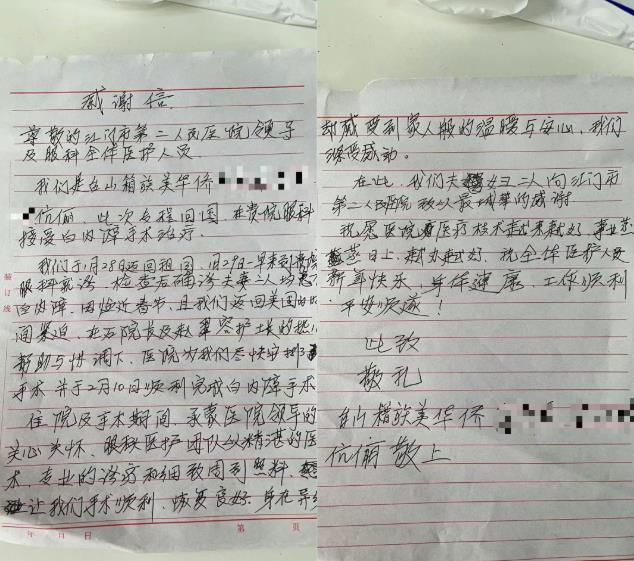 感谢信
尊敬的江门市第二人民医院领导
及眼科全体医护人员
我们是台山籍旅美华侨
伉俪,此次专程回国,在贵院眼科
接受白内障手术治疗。
我们于1月28日返回祖国,1月29日一早来到贵院
眼科就诊,检查后确诊夫妻二人均患
白内障,因临近春节,且我们返回美国的时
间紧迫,在石院长及赵翠容护士长的热心
帮助与协调下,医院为我们尽快安排了
手术并于2月10日顺利完成白内障手术
住院及手术期间,承蒙医院领导的
关心关怀、眼科医护团队以精湛的医
术,专业的诊疗和细致周到照料,
让我们手术顺利、恢复良好.身在异
年 月 日
第 页
装订线
却感受到家人般的温暖与安心,我们
深受感动。
在此,我们夫妇二人向江门市
第二人民医院致以最诚挚的感谢.
祝愿医院医疗技术越来越好,事业蒸
蒸日上,越办越好,祝全体医护人员
新年快乐、身体健康、工作顺利
平安顺遂!
此致
敬礼
台山籍旅美华侨
伉俪敬上